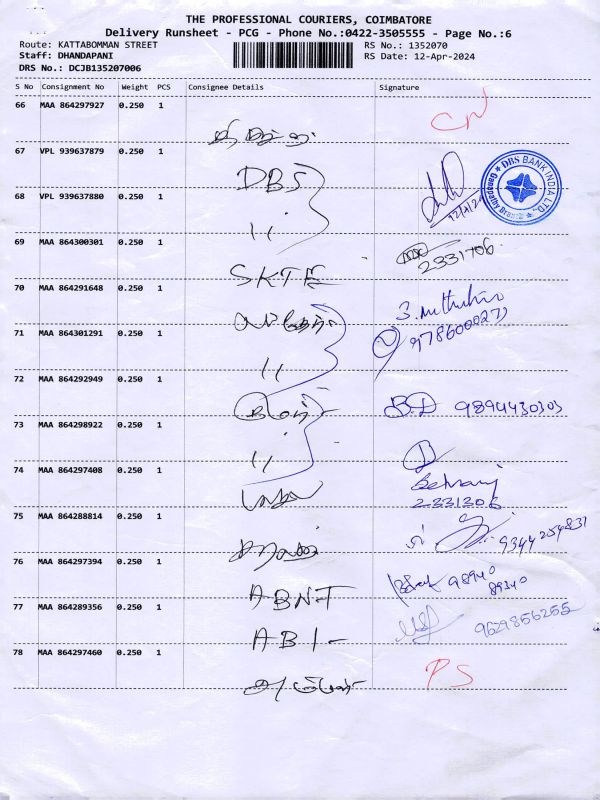 THE PROFESSIONAL COURIERS, COIMBATORE
Delivery Runsheet - PCG - Phone No.:0422-3505555 - Page No.:6
Route: KATTABOMMAN STREET RS No.: 1352070
Staff: DHANDAPANI RS Date: 12-Apr-2024
DRS No.: DCJB135207006
S No Consignment No Weight PCS Consignee Details Signature
66 MAA 864297927 0.250 1
CN
67 VPL 939637879 0.250 1
DBS
DBS BANK INDIA LTD
68 VPL 939637880 0.250 1
11
69 MAA 864300301 0.250 1
2331706
SKTE
70 MAA 864291648 0.250 1
71 MAA 864301291 0.250 1
11
72 MAA 864292949 0.250 1
BD 9894430303
73 MAA 864298922 0.250 1
11
74 MAA 864297408 0.250 1
2331306
75 MAA 864288814 0.250 1
9344254831
76 MAA 864297394 0.250 1
98940
89340
ABNT
77 MAA 864289356 0.250 1
9629856255
ABI-
78 MAA 864297460 0.250 1
PS